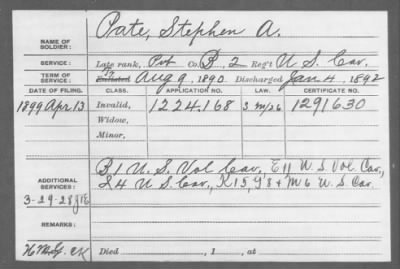 NAME OF SOLDIER: Pate, Stephen A.
SERVICE: Late rank, Pvt Co. B, 2 Reg't U S. Cav.
TERM OF SERVICE: Enlisted Aug 9, 1890. Discharged Jan. 4, 1892
DATE OF FILING. CLASS. APPLICATION NO. LAW. CERTIFICATE NO.
1899 Apr. 13 Invalid, 1224.168 1291630
Widow,
Minor,
ADDITIONAL SERVICES: B 1 U. S. Vol Cav., E 11 U. S. Vol. Cav.,
L 4 U S. Cav., K 15, & M 6 U. S. Cav.
3-29-28
REMARKS:
Died , 1 , at